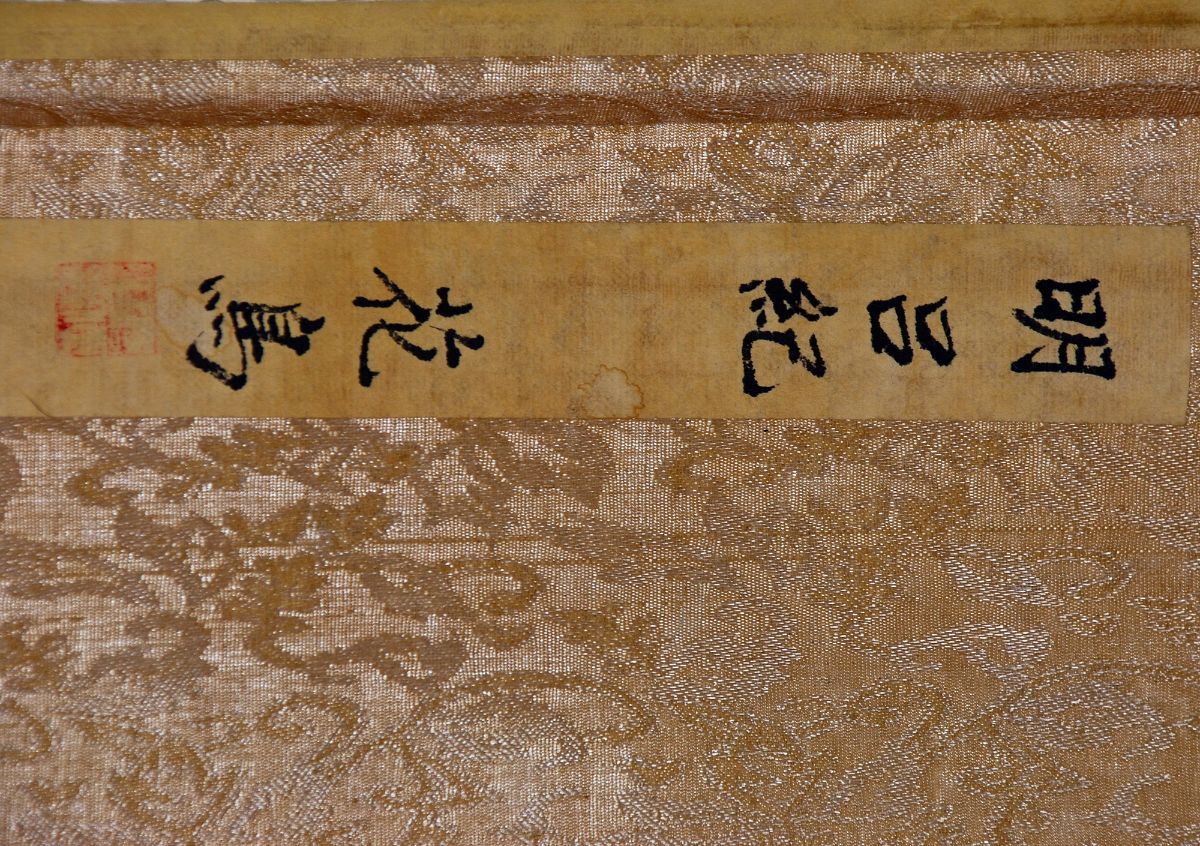 明呂紀花鳥